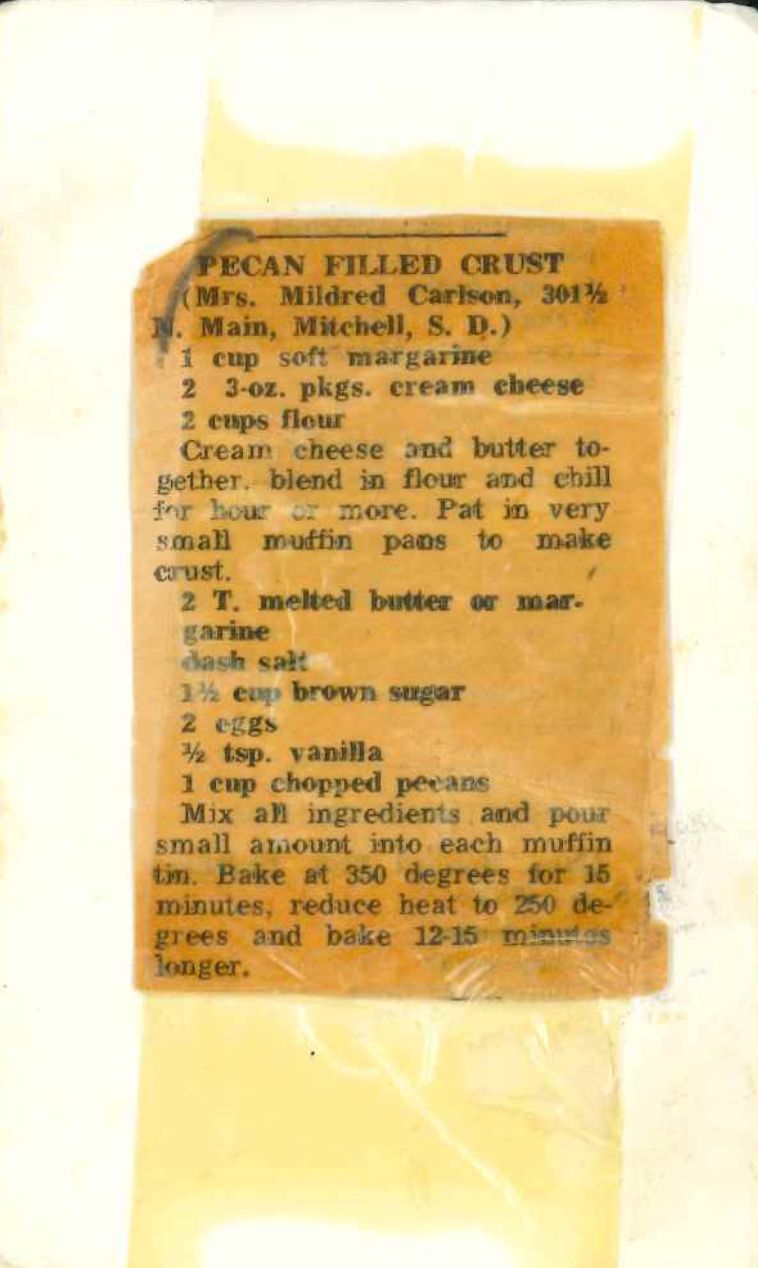 PECAN FILLED CRUST
(Mrs. Mildred Carlson, 301½
N. Main, Mitchell, S. D.)
1 cup soft margarine
2 3-oz. pkgs. cream cheese
2 cups flour
Cream cheese and butter to-
gether. blend in flour and chill
for hour or more. Pat in very
small muffin pans to make
crust.
2 T. melted butter or mar-
garine
dash salt
1½ cup brown sugar
2 eggs
½ tsp. vanilla
1 cup chopped pecans
Mix all ingredients and pour
small amount into each muffin
tin. Bake at 350 degrees for 15
minutes, reduce heat to 250 de-
grees and bake 12-15 minutes
longer.